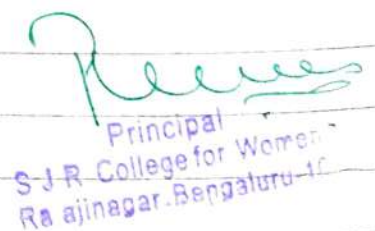 Principal
S J R College for Women
Ra ajinagar. Bengaluru-1